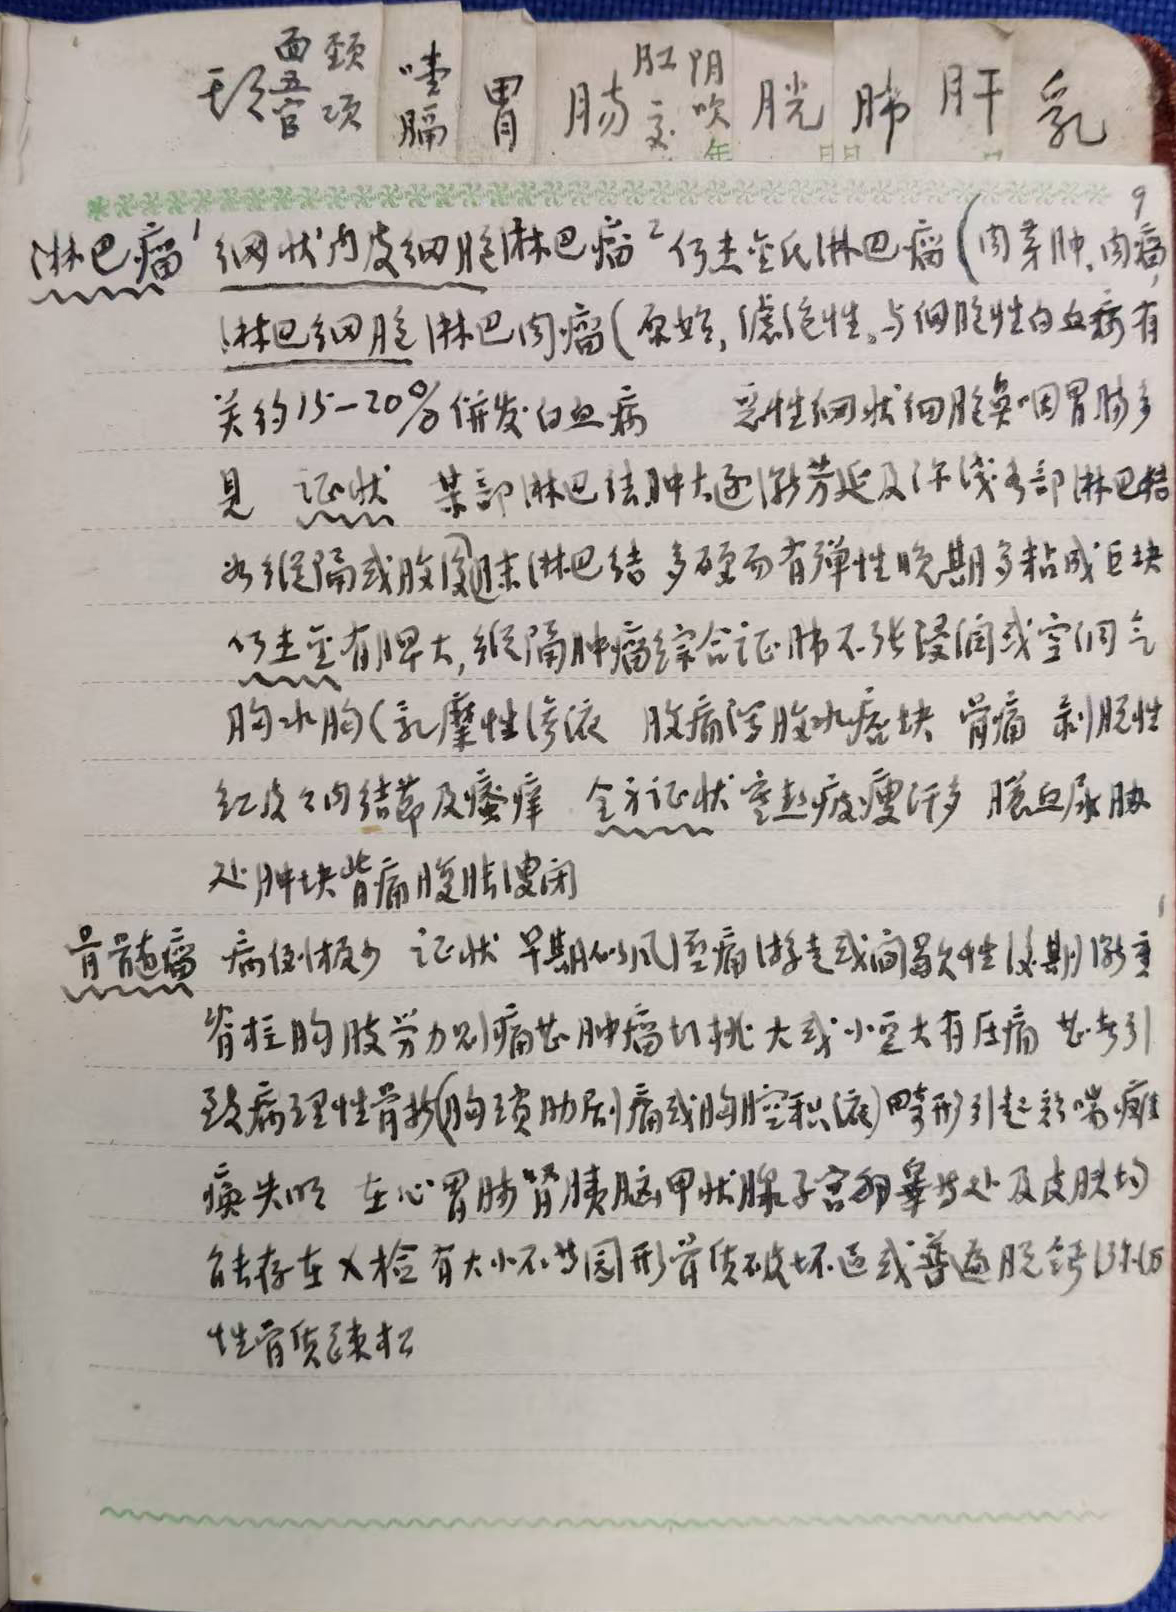 头 面五官 颈项 噎膈 胃 肠 肛交 阴吹 膀 肺 肝 乳
9
淋巴瘤 1 细网状内皮细胞淋巴瘤 2 何杰金氏淋巴瘤(肉芽肿、肉瘤,
淋巴细胞淋巴肉瘤(原始,滤泡性。与细胞性白血病有
关约15-20%併发白血病 恶性网状细胞鼻咽胃肠多
见 证状 某部淋巴结肿大逐渐芳延及深浅各部淋巴结
如纵隔或腹后淋巴结 多硬而有弹性晚期多粘成巨块
何杰金有脾大,纵隔肿瘤综合证肺不张浸润或空洞气
胸水胸(乳糜性渗液 腹痛泻腹水痞块 骨痛 剥脱性
红皮々内结节及瘙痒 全身证状 寒热疲瘦汗多 血尿
处肿块背痛腹胀溲闭
骨髓瘤 病例极少 证状 早期似风湿痛游走或间歇性后期渐重
脊柱胸肢劳力则痛甚肿瘤如桃大或小豆大有压痛 甚者引
致病理性骨折(胸琐肋剧痛或胸腔积液)畸形引起 喘瘫
痪失明 在心胃肺肾胰脑甲状腺子宫卵睾等处及皮肤均
能存在 X检有大小不等园形骨质破坏区或普遍脱钙弥漫
性骨质疎松